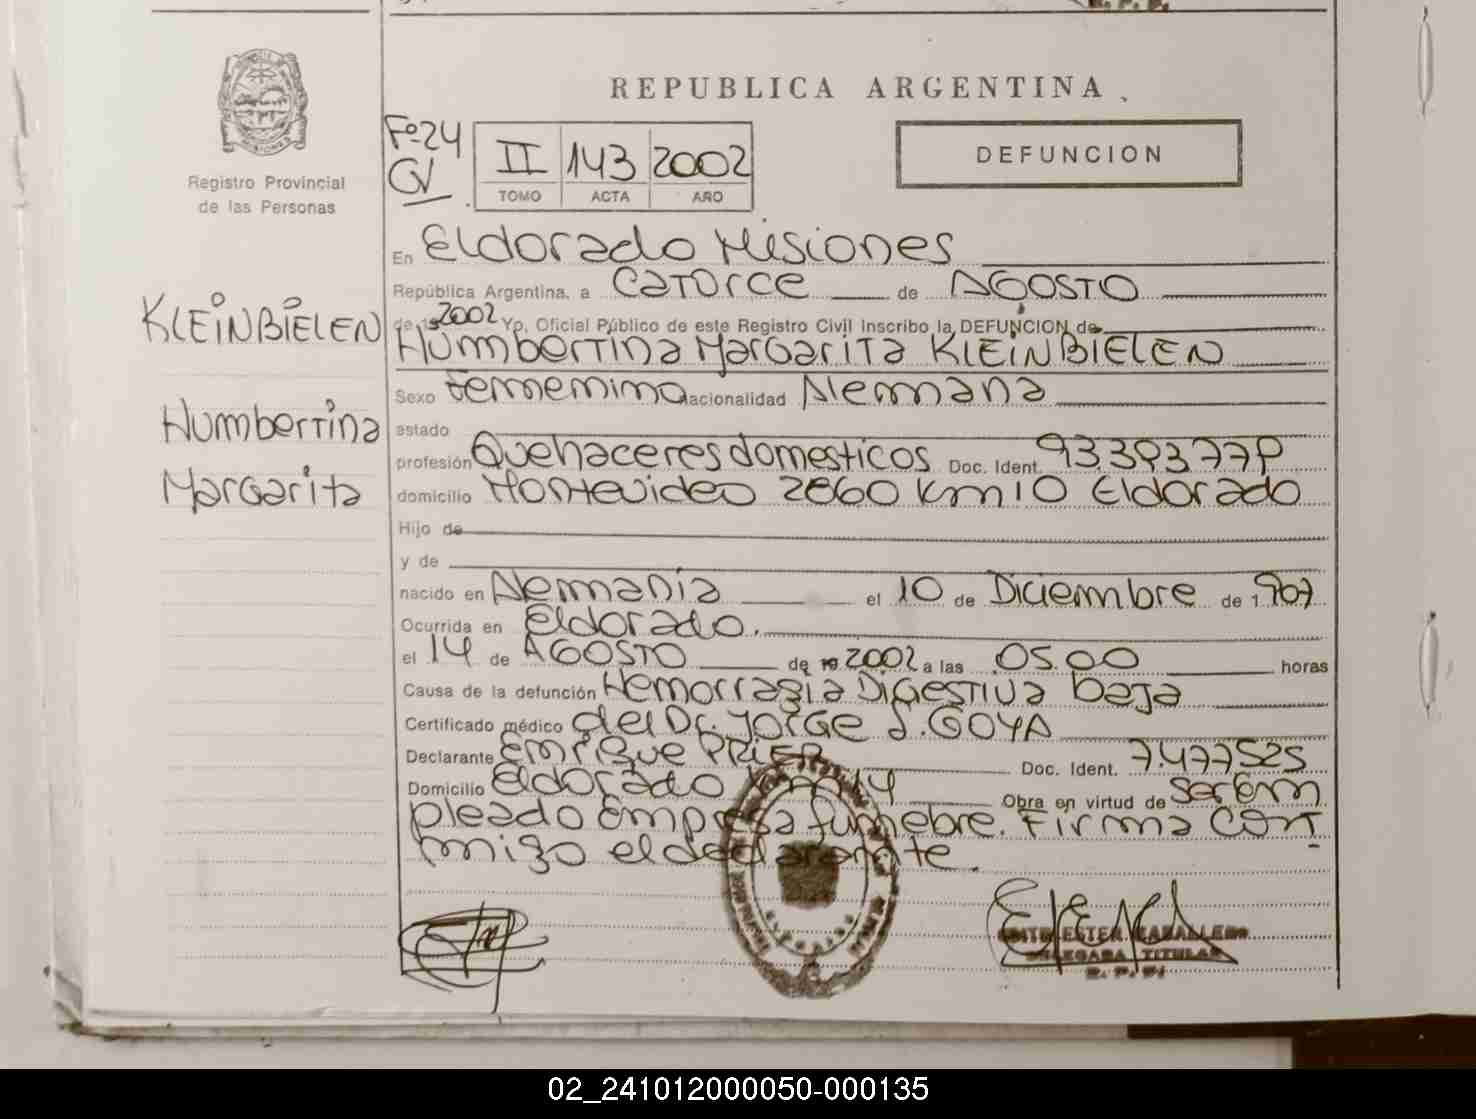 REPUBLICA ARGENTINA
Registro Provincial
de las Personas
Fº 24
II 143 2002
TOMO ACTA AÑO
DEFUNCION
En Eldorado Misiones
República Argentina, a Catorce de AGOSTO
de 2002 Yo, Oficial Público de este Registro Civil Inscribo la DEFUNCION de
KLEINBIELEN
Humbertina Margarita KLEINBIELEN
Sexo femenino Nacionalidad Alemana
Humbertina
estado
profesión Quehaceres domesticos Doc. Ident.
Margarita
domicilio Montevideo 2860 Km 10 Eldorado
Hijo de
y de
nacido en Alemania el 10 de Diciembre de 1.907
Ocurrida en Eldorado.
el 14 de AGOSTO de 2002 a las 05.00 horas
Causa de la defunción Hemorragia DIGESTIVA baja
Certificado médico del Dr. Jorge J. GOYA
Declarante Enrique PRIER Doc. Ident. 7.477525
Domicilio Eldorado Km 14 Obra en virtud de Ser em
pleado Empresa funebre. Firma con
migo el declarante.
ESTER CABALLERO
DELEGADA TITULAR
R. P. P.
02_241012000050-000135